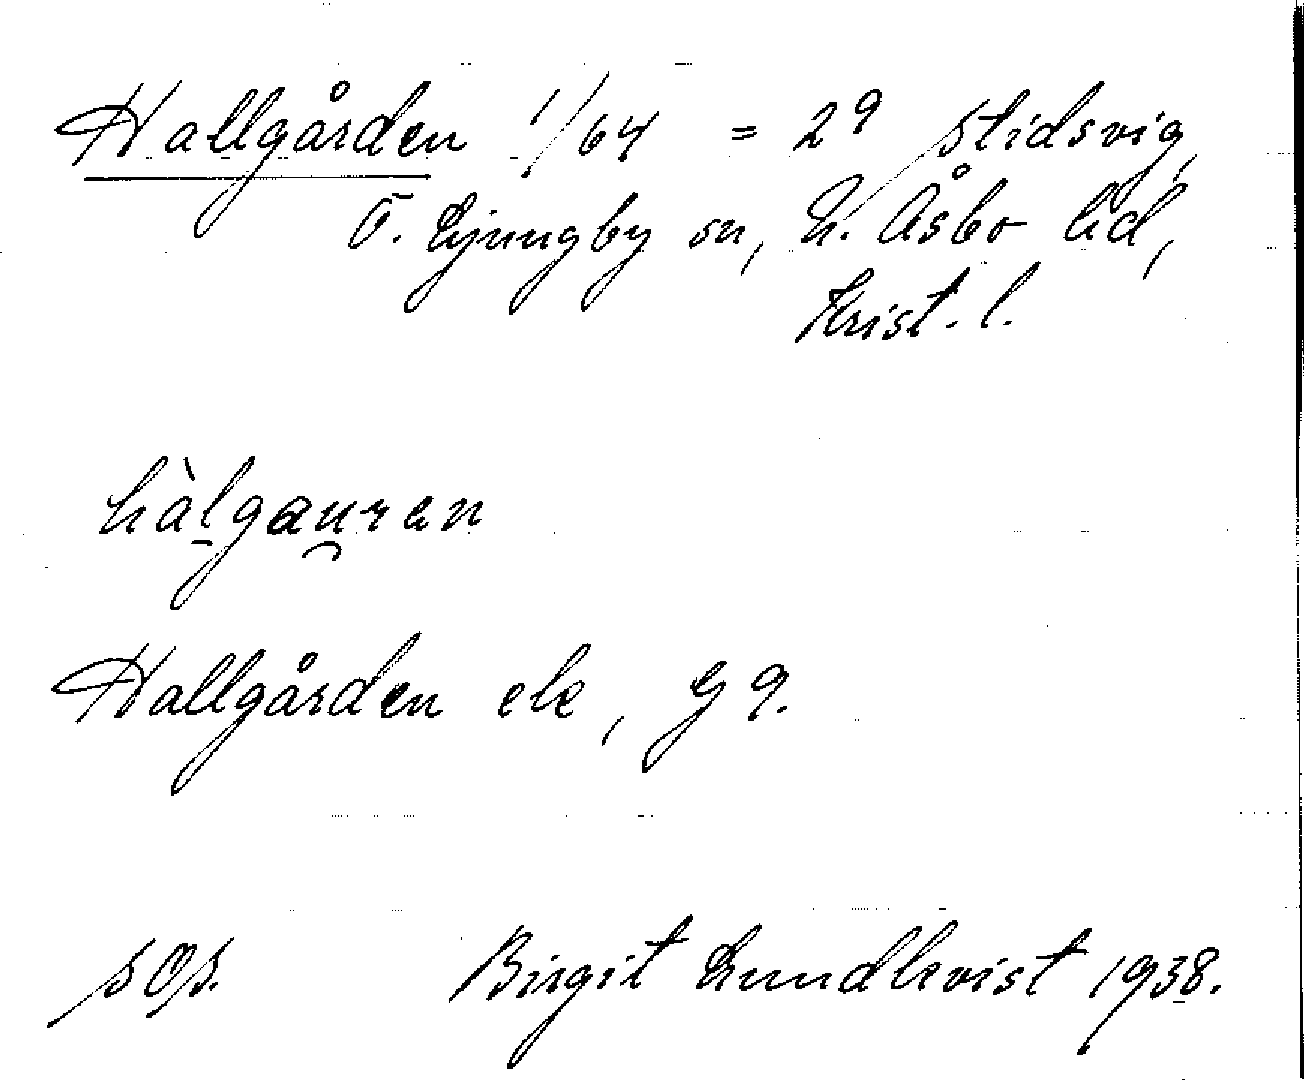 Hallgården 1/64 = 2⁹ Stidsvig,
Ö. Ljungby sn, N. Åsbo hd,
Krist. l.
hàlgau̯ren
Hallgården ek, G 9.
SOS. Birgit Lundkvist 1938.